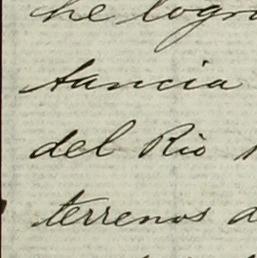 he logr
tancia
del Rio
terrenos d